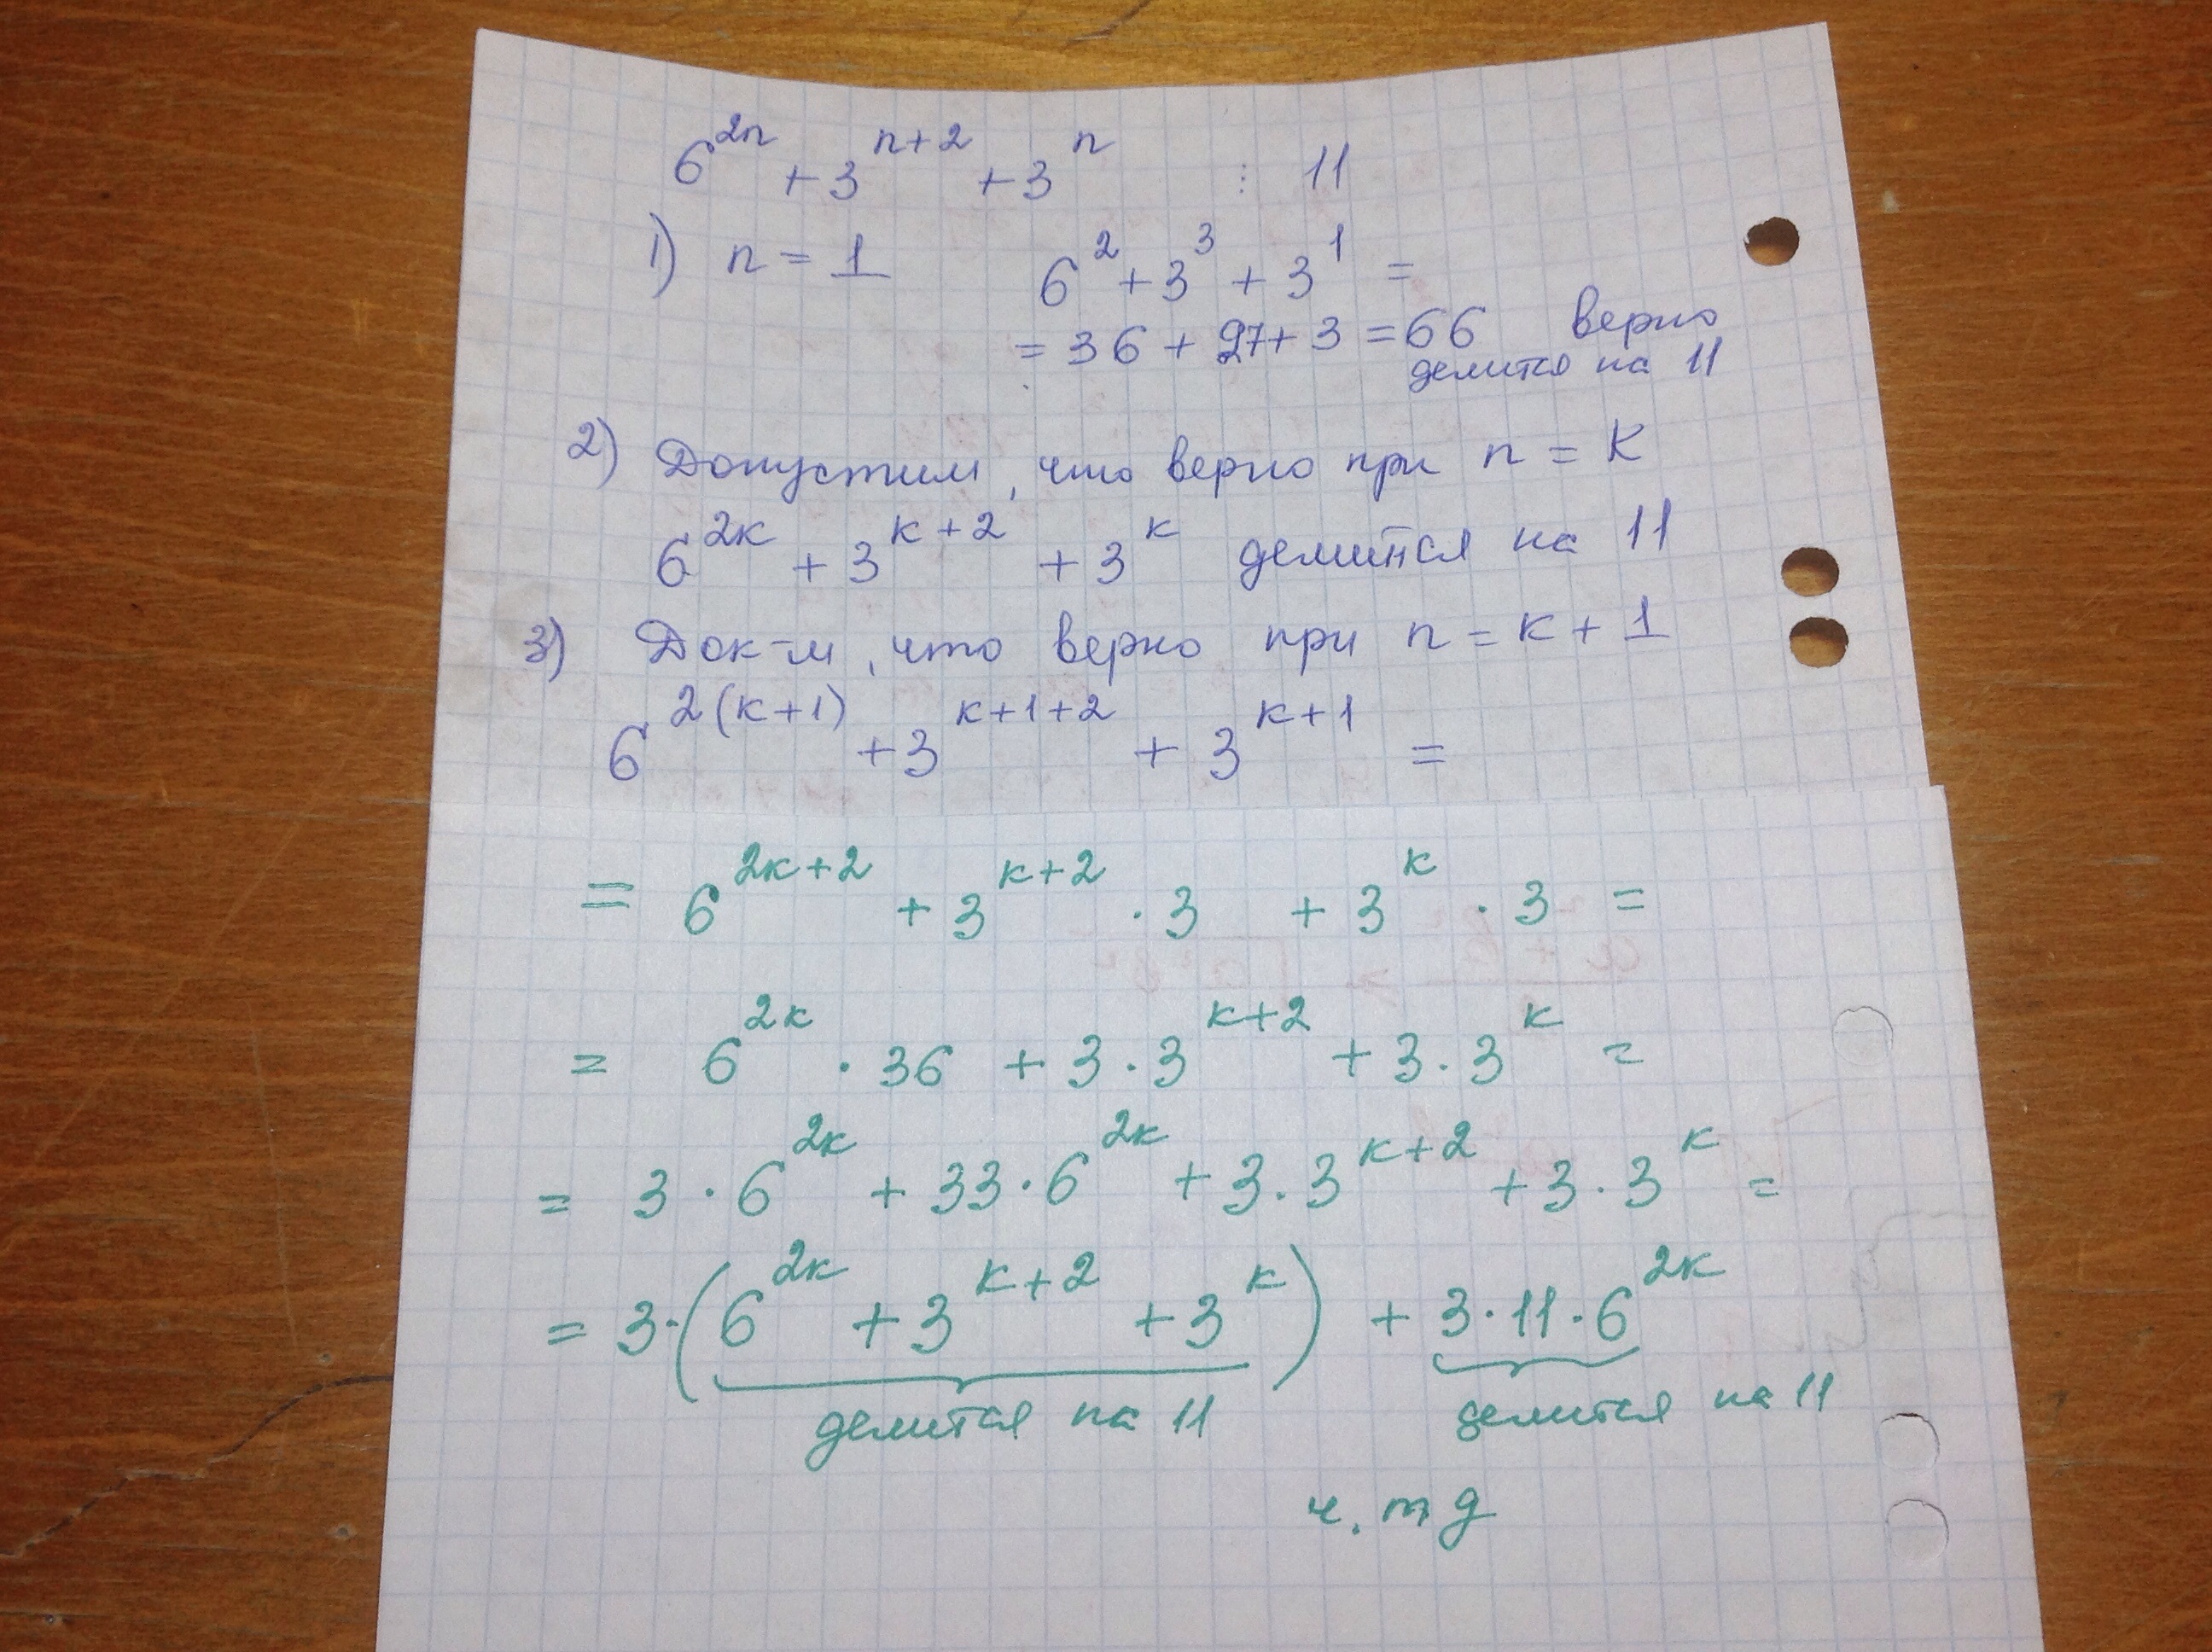 6^{2n} + 3^{n+2} + 3^{n} ⋮ 11
1) n = 1 6^{2} + 3^{3} + 3^{1} =
= 36 + 27 + 3 = 66 верно
делится на 11
2) Допустим, что верно при n = K
6^{2к} + 3^{к+2} + 3^{к} делится на 11
3) Док-м, что верно при n = к + 1
6^{2(к+1)} + 3^{к+1+2} + 3^{к+1} =
= 6^{2к+2} + 3^{к+2} · 3 + 3^{к} · 3 =
= 6^{2к} · 36 + 3 · 3^{к+2} + 3 · 3^{к} =
= 3 · 6^{2к} + 33 · 6^{2к} + 3 · 3^{к+2} + 3 · 3^{к} =
= 3 · (6^{2к} + 3^{к+2} + 3^{к}) + 3 · 11 · 6^{2к}
делится на 11 делится на 11
ч. т д